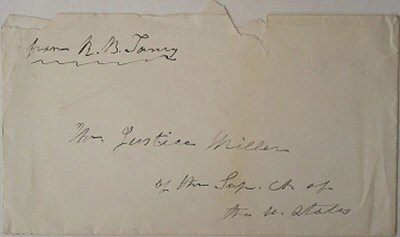 from R. B. Taney
Mr. Justice Miller
of the Sup. Ct. of
the U. States